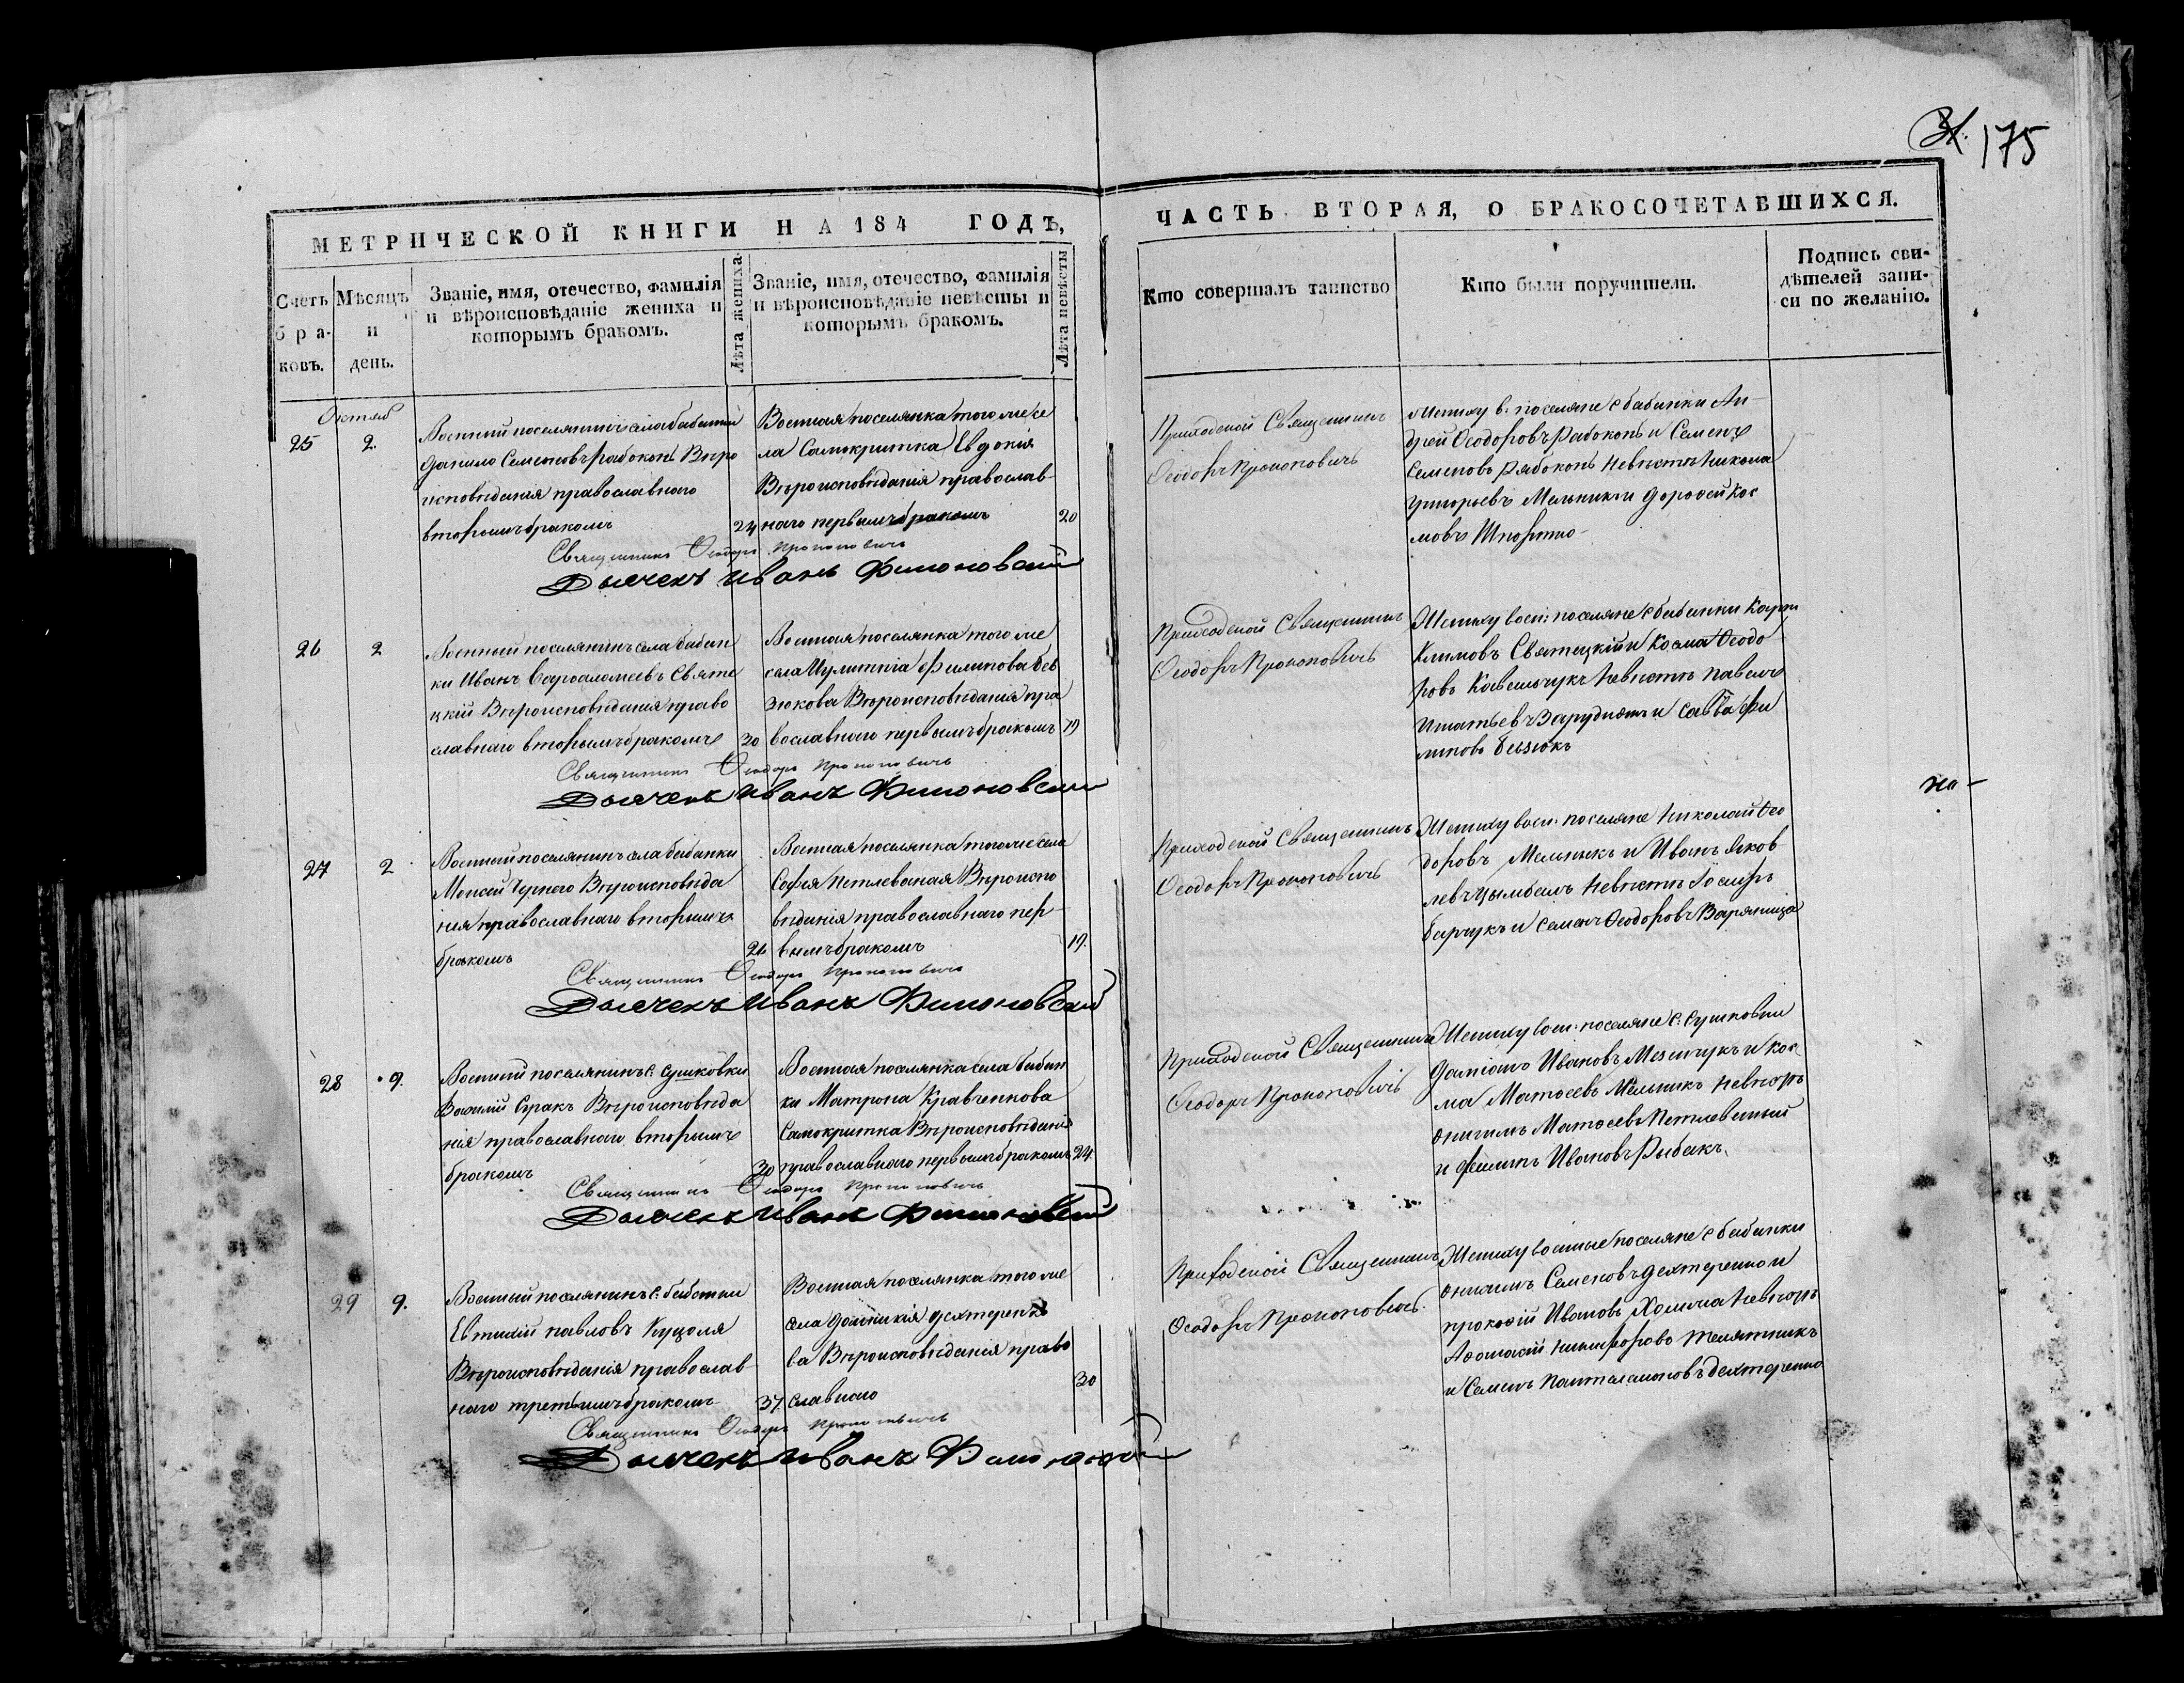 175
МЕТРИЧЕСКОЙ КНИГИ НА 184 ГОДЪ,
Счетъ бра-ковъ.
Мѣсяцъ и день.
Званіе, имя, отечество, фамилія и вѣроисповѣданіе жениха и которымъ бракомъ.
Лѣта жениха.
Званіе, имя, отечество, фамилія и вѣроисповѣданіе невѣсты и которымъ бракомъ.
Лѣта невѣсты
ЧАСТЬ ВТОРАЯ, О БРАКОСОЧЕТАВШИХСЯ.
Кто совершалъ таинство
Кто были поручители.
Подпись сви-
дѣтелей запи-
си по желанію.
Октяб
25
2.
Военный поселянинъ села бабанки
Данило Семеновъ Рабоконь Вѣро
исповѣданія православнаго
вторымъ бракомъ
24
Военная поселянка того же се
ла Самокритка Евдокія
Вѣроисповѣданія православ
наго первымъ бракомъ
20
Приходской Священникъ
Ѳеодоръ Прокоповичъ
Жениху в: поселяне с бабанки Ан-
дрей Ѳеодоровъ Рабоконь и Семенъ
Семеновъ Рябоконь Невѣстѣ Никола
Григорьевъ Мельникъ и Дороѳей Кос
мовъ
Священникъ Ѳеодоръ Прокоповичъ
Дьячекъ Иванъ Филоновский
26
2
Военный поселянинъ села бабан
ки Иванъ Варѳоломеевъ Святе
цкій Вѣроисповѣданія право
славнаго вторымъ бракомъ
30
Военная поселянка того же
села Іулиттія Филипова Бев
зюкова Вѣроисповѣданія пра
вославнаго первымъ бракомъ
19
Приходской Священникъ
Ѳеодоръ Прокоповичъ
Жениху воен: поселяне с бабанки Карпъ
Климовъ Святецкій и Косма Ѳеодо
ровъ Ковальчукъ Невѣстѣ Павелъ
Игнатьевъ и Савва Фи
липовъ Бевзюкъ
Священникъ Ѳеодоръ Прокоповичъ
Дьячекъ Иванъ Филоновский
но-
27
2
Военный поселянинъ села бабанки
Моисей Чорного Вѣроисповѣда
нія православнаго вторымъ
бракомъ
26
Военная поселянка того же села
Софія Петлеваная Вѣроиспо
вѣданія православнаго пер-
вымъ бракомъ
19.
Приходской Священникъ
Ѳеодоръ Прокоповичъ
Жениху воен: поселяне Николай Ѳео
доровъ Мельникъ и Иванъ Яков
левъ Цымбалъ Невѣстѣ Іосифъ
и Семенъ Ѳеодоровъ Вареница
Священникъ Ѳеодоръ Прокоповичъ
Дьячекъ Иванъ Филоновский
28
9.
Военный поселянинъ с. Сушковки
Василій Сиракъ Вѣроисповѣда
нія православнаго вторымъ
бракомъ
30
Военная поселянка села бабан
ки Матрона Кравченкова
Самокритка Вѣроисповѣданія
православнаго первымъ бракомъ
24.
Приходской Священникъ
Ѳеодоръ Прокоповичъ
Жениху воен: поселяне с. Сушковки
Даміанъ Ивановъ и Кос
ма Матѳеевъ Мельникъ Невѣстѣ
Онисимъ Матѳеевъ Петлеваный
и Филипъ Ивановъ Рыбакъ.
Священникъ Ѳеодоръ Прокоповичъ
Дьячекъ Иванъ Филоновский
29
9.
Военный поселянинъ с. бабанки
Евтихій Павловъ Куцоля
Вѣроисповѣданія православ
наго третьимъ бракомъ
37.
Военная поселянка того же
села Домникія Дехтеренко
ва Вѣроисповѣданія право
славнаго
30
Приходской Священникъ
Ѳеодоръ Прокоповичъ.
Жениху военные поселяне с бабанки
Онисимъ Семеновъ Дехтеренко и
Прокопій Ивановъ Невѣстѣ
Аѳанасій Никифоровъ Телятникъ
и Семенъ Пантелеимоновъ Дехтеренко
Священникъ Ѳеодоръ Прокоповичъ
Дьячекъ Иванъ Филоновский